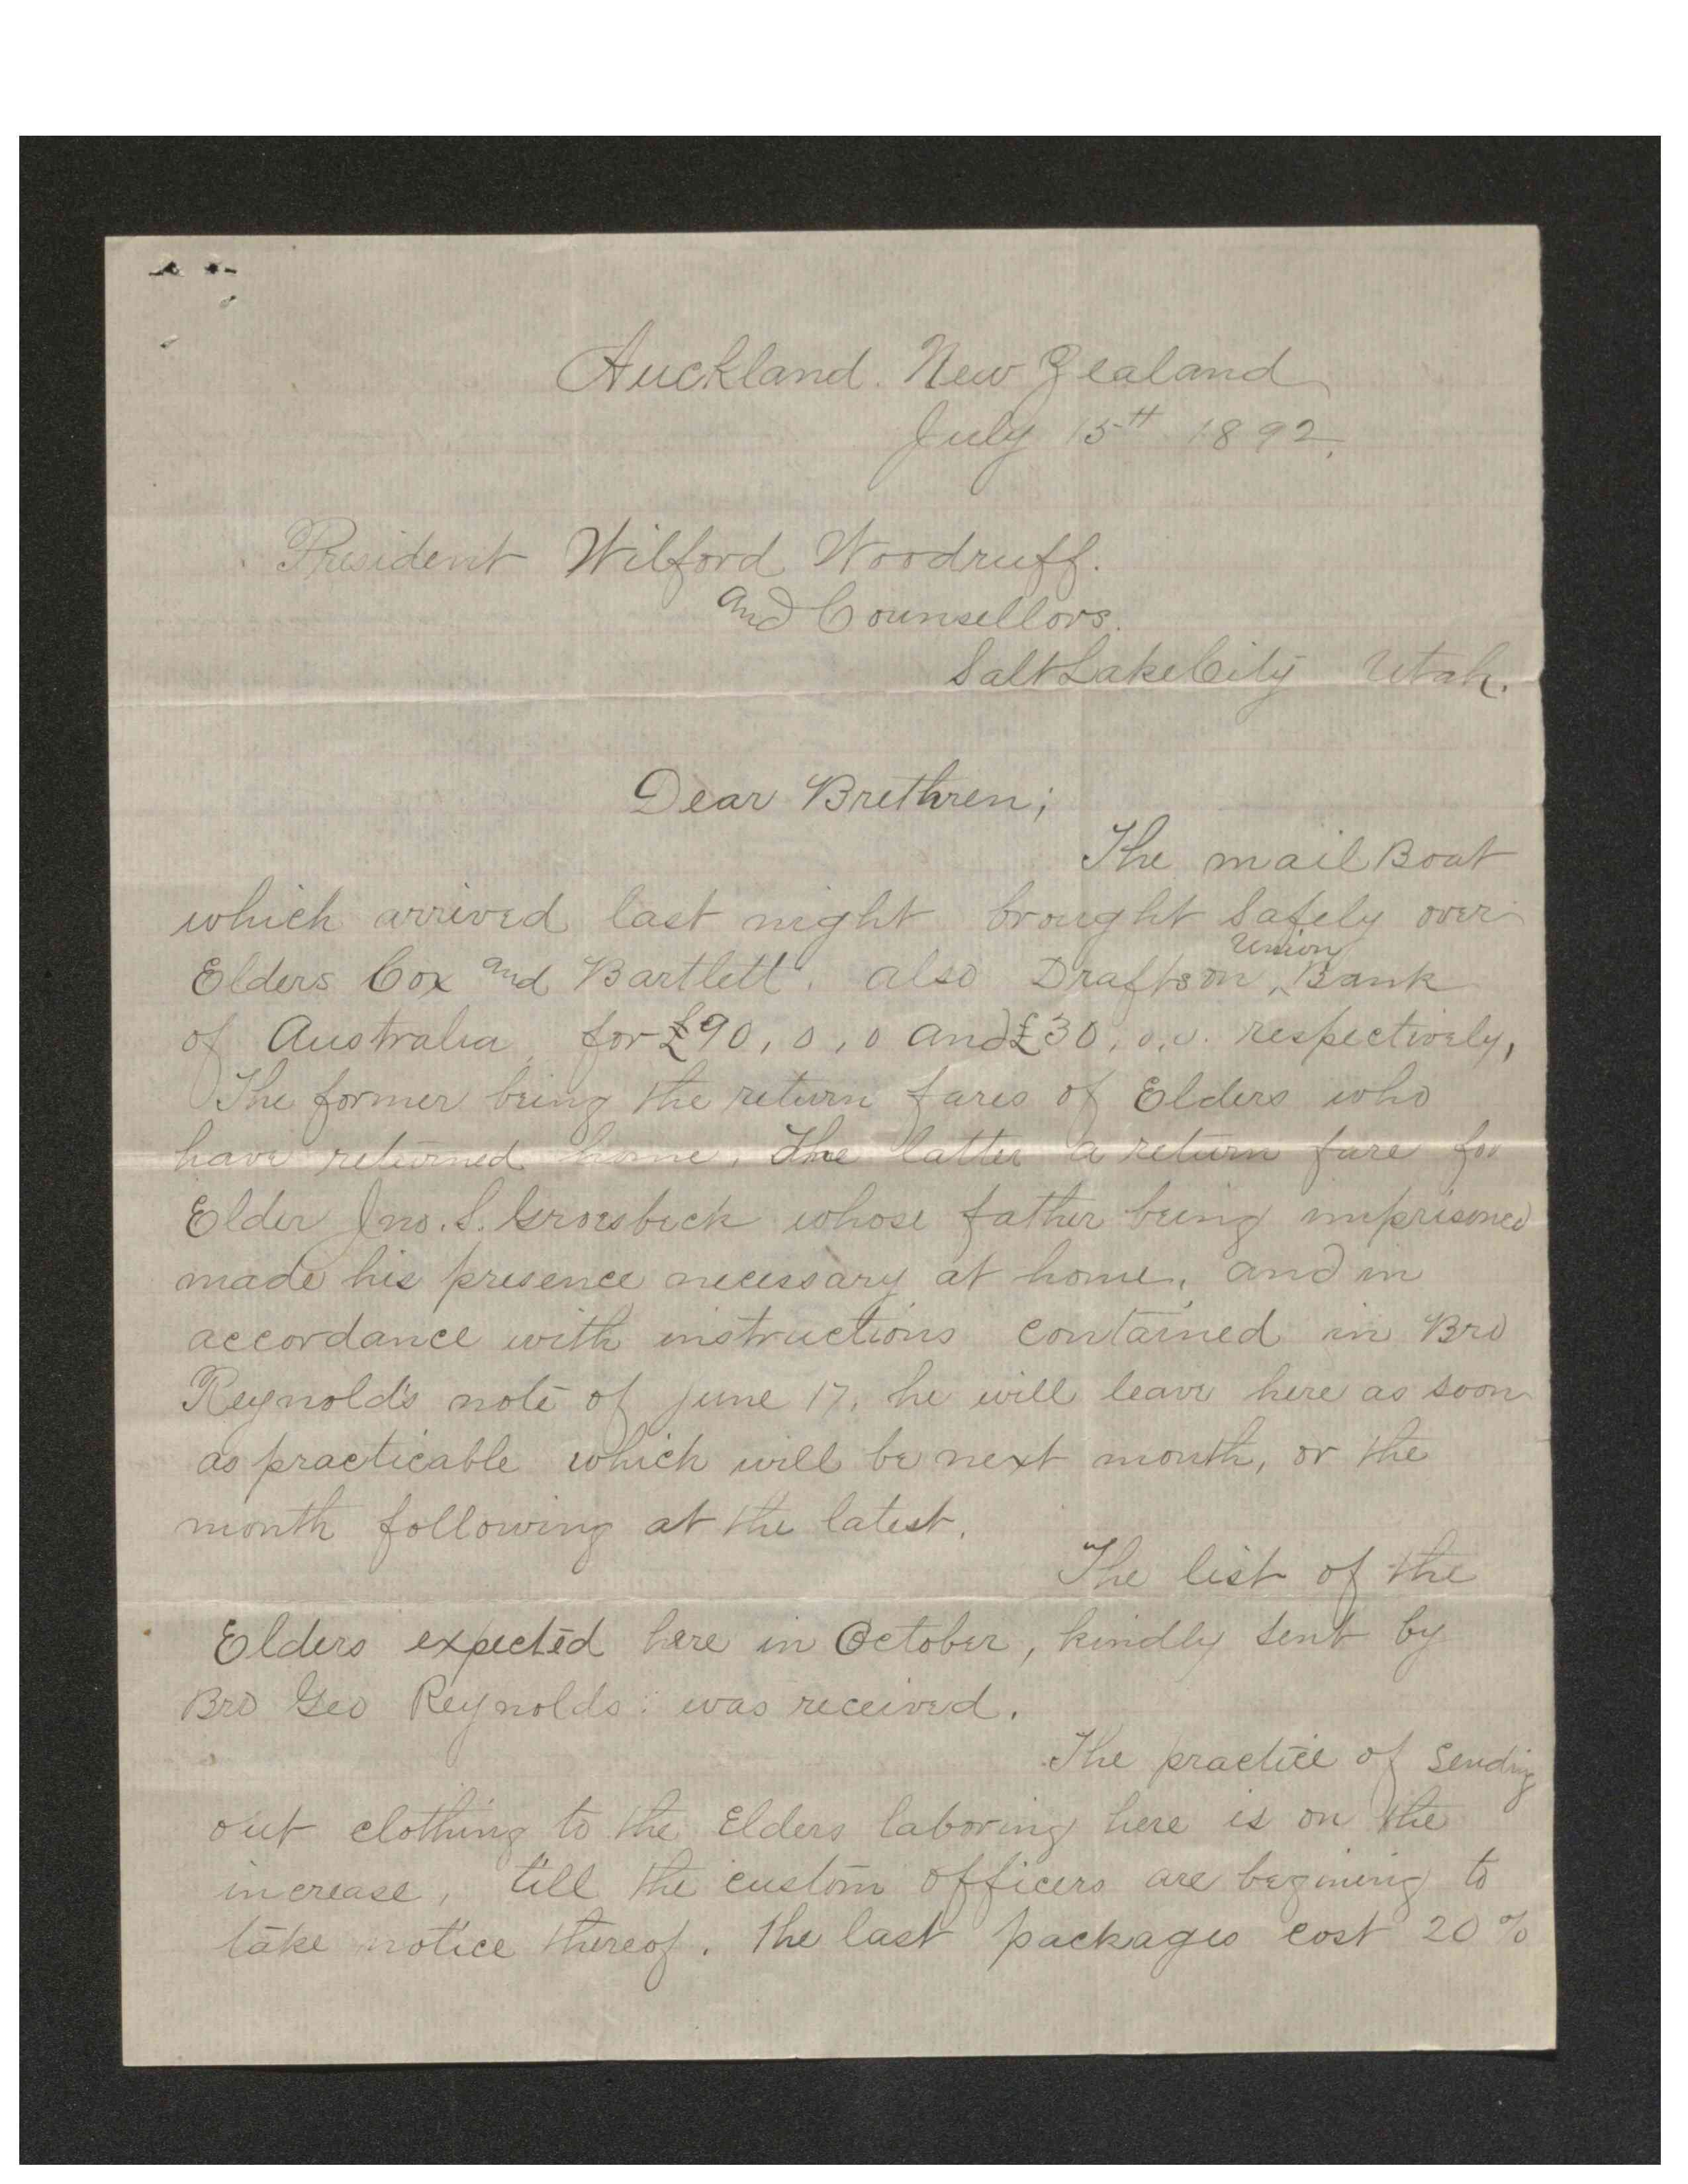 Auckland. New Zealand
July 15th 1892.
President Wilford Woodruff.
and Counsellors.
Salt Lake City Utah.
Dear Brethren;
The mail Boat
which arrived last night brought safely over
Elders Cox and Bartlett. also Drafts on Union Bank
of Australia for £90, 0, 0 and £30, 0, 0. respectively,
The former being the return fares of Elders who
have returned home. The latter a return fare for
Elder Jno. S. Groesbeck whose father being imprisoned
made his presence necessary at home, and in
accordance with instructions contained in Bro
Reynold's note of June 17, he will leave here as soon
as practicable which will be next month, or the
month following at the latest.
The list of the
Elders expected here in October, kindly sent by
Bro Geo Reynolds: was received.
The practice of sending
out clothing to the Elders laboring here is on the
increase, till the custom officers are begining to
take notice thereof. The last packages cost 20%